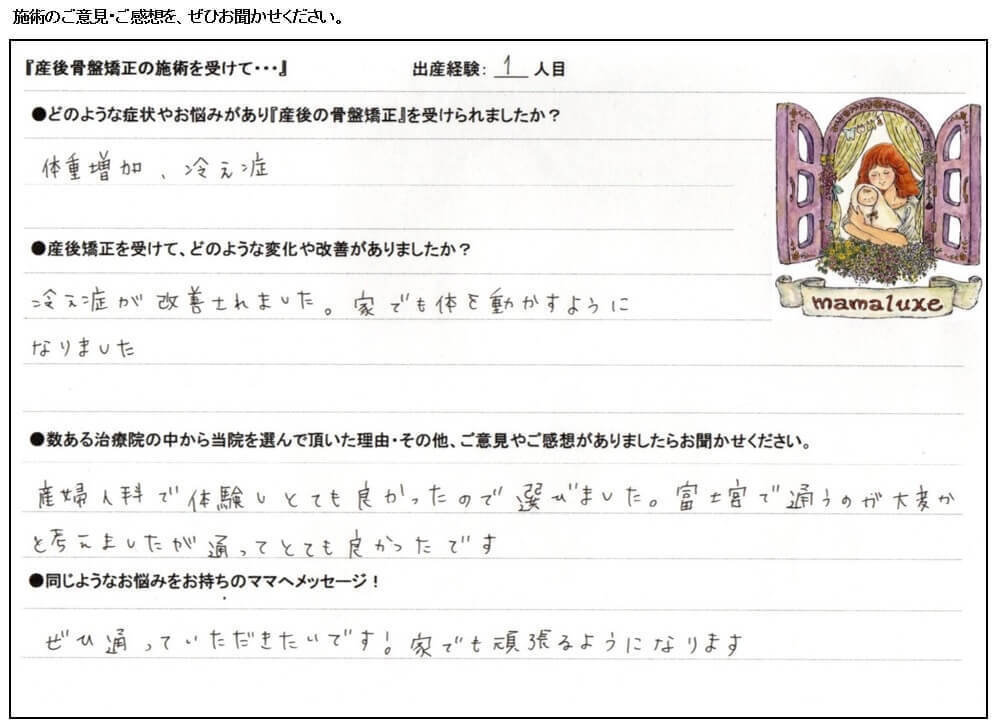 施術のご意見・ご感想を、ぜひお聞かせください。
『産後骨盤矯正の施術を受けて・・・』 出産経験: 1 人目
●どのような症状やお悩みがあり『産後の骨盤矯正』を受けられましたか？
体重増加、冷え症
●産後矯正を受けて、どのような変化や改善がありましたか？
冷え症が改善されました。家でも体を動かすように
なりました
mamaluxe
●数ある治療院の中から当院を選んで頂いた理由・その他、ご意見やご感想がありましたらお聞かせください。
産婦人科で体験しとても良かったので選びました。富士宮で通うのが大変か
と考えましたが通ってとても良かったです
●同じようなお悩みをお持ちのママへメッセージ！
ぜひ通っていただきたいです！家でも頑張るようになります